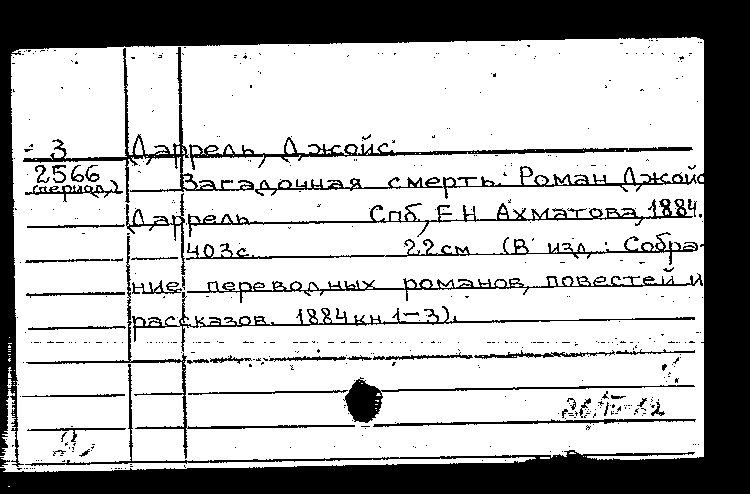 3 Даррель, Джойс.
2566 Загадочная смерть. Роман Джойс
(период.) Даррель. Спб, Е Н Ахматова, 1884.
403с. 22см (В изд.: Собра-
ние переводных романов, повестей и
рассказов. 1884 кн. 1-3).